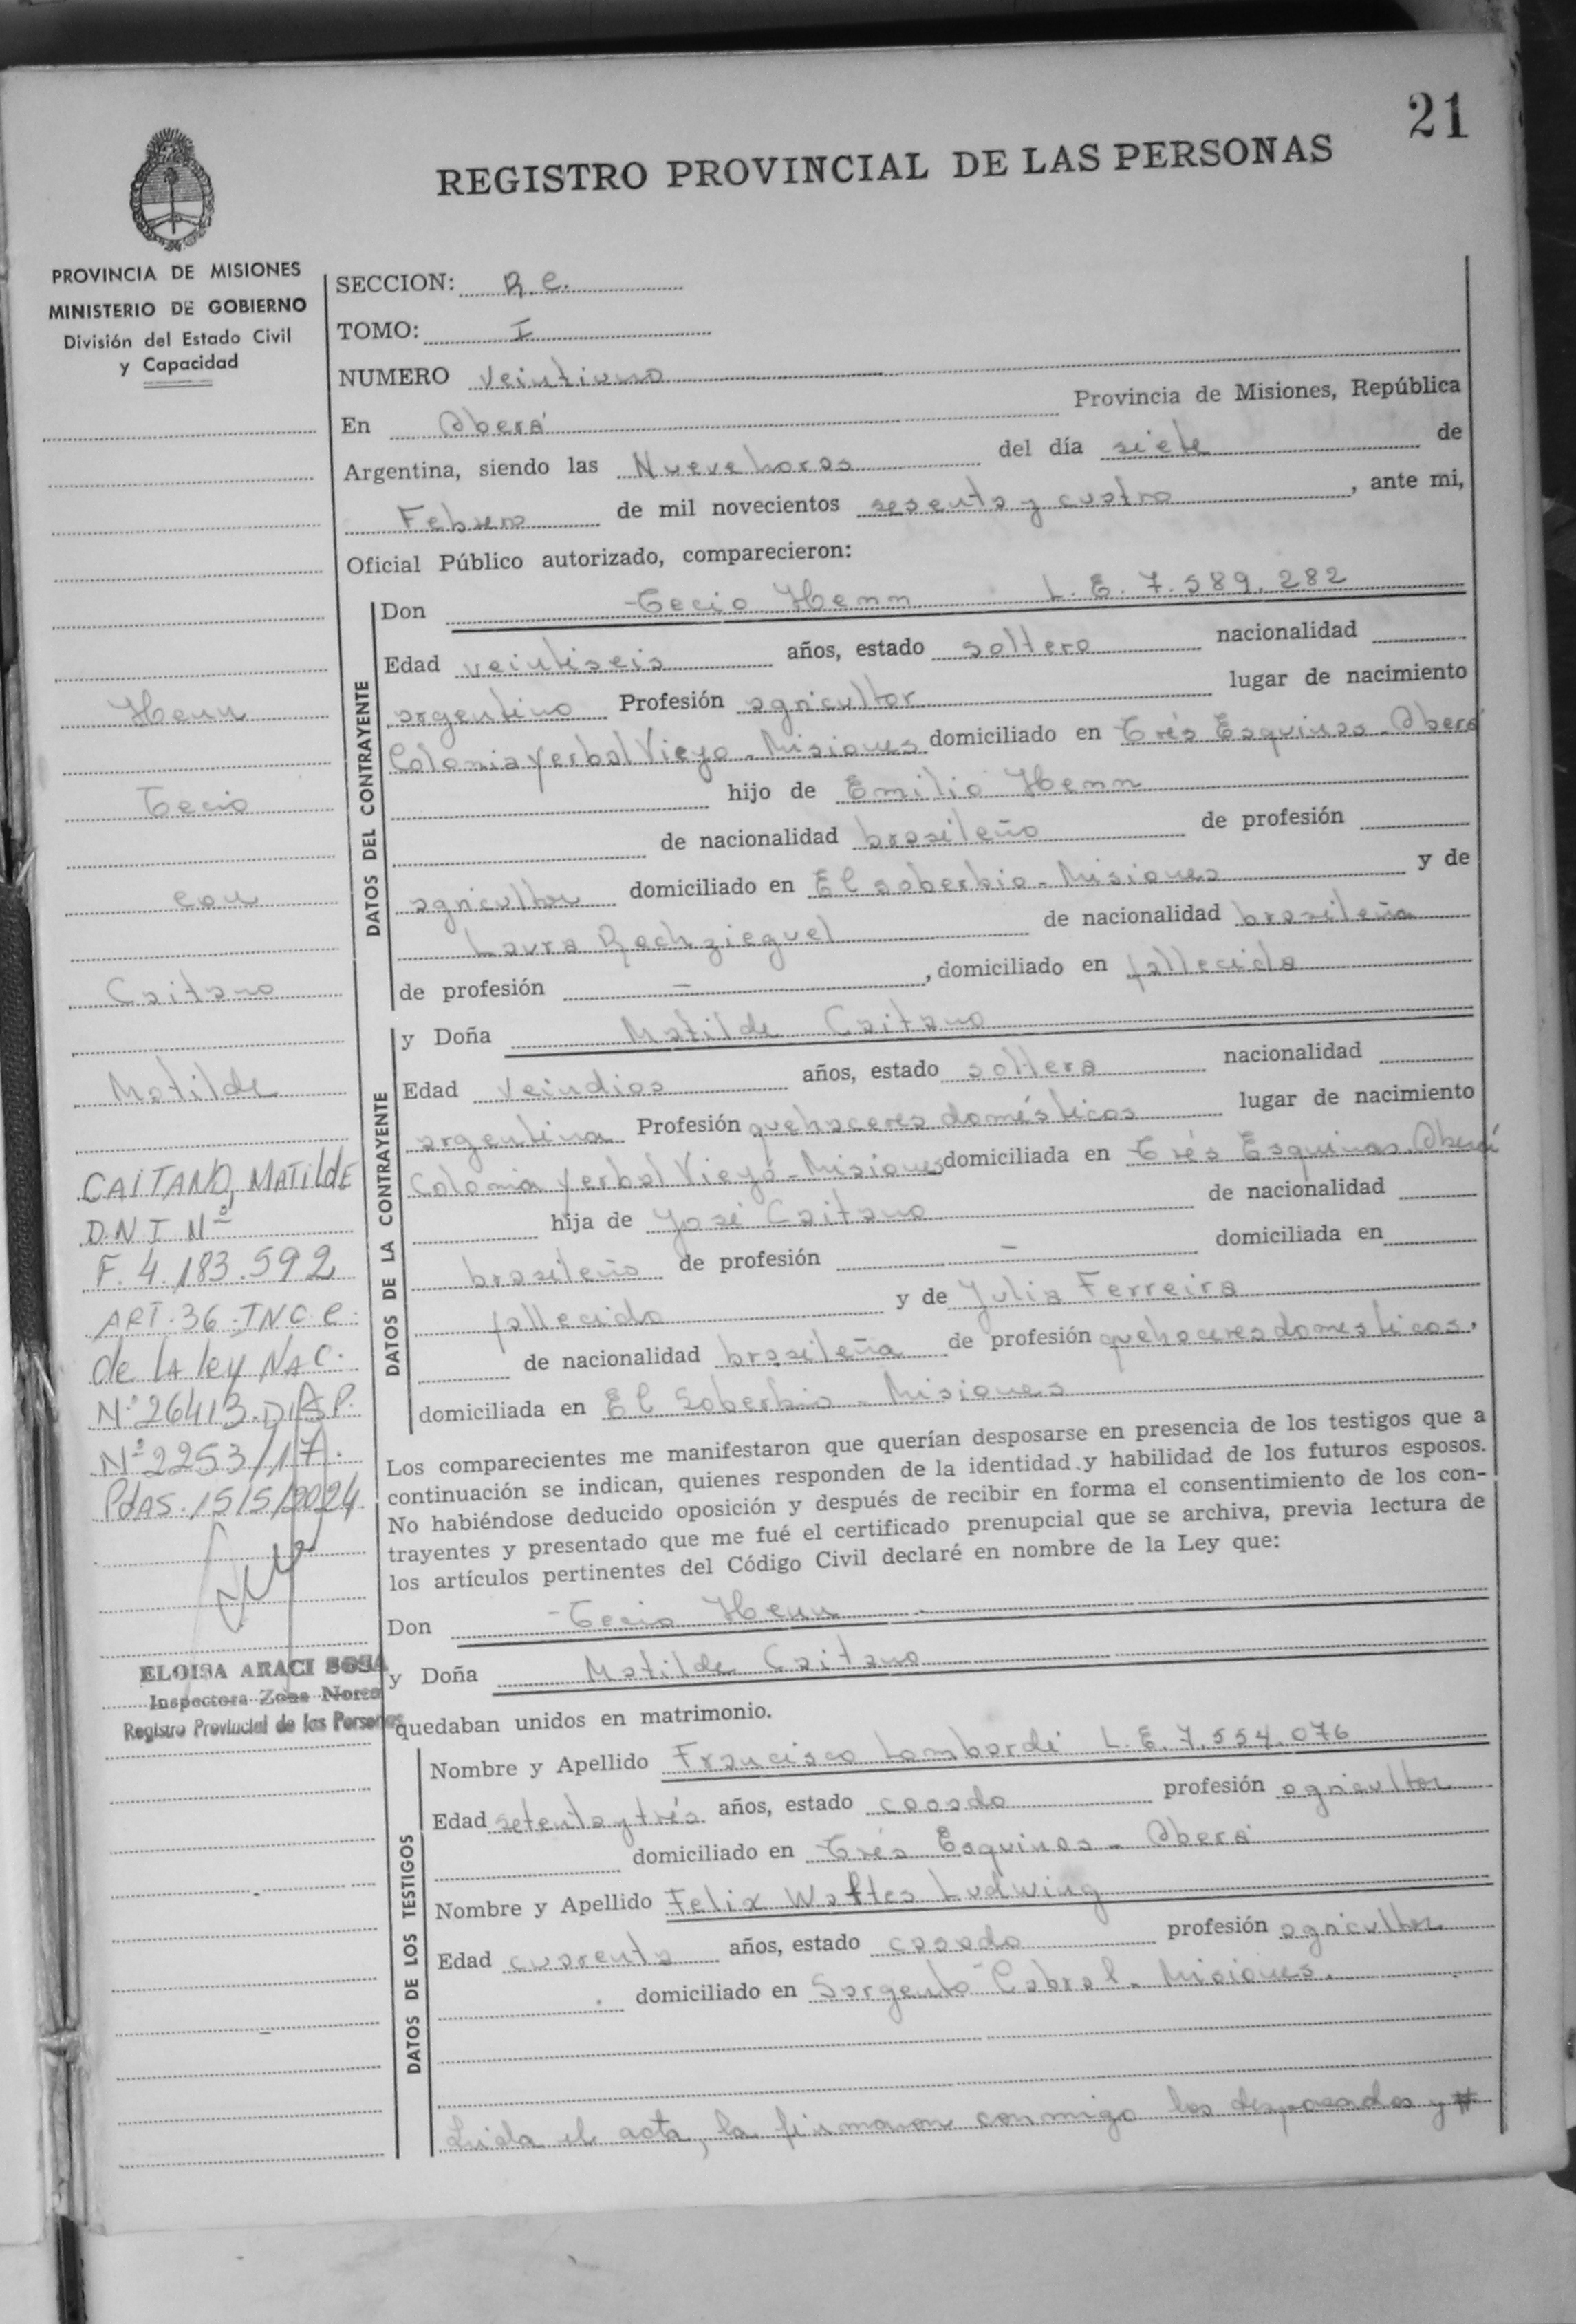 21
REGISTRO PROVINCIAL DE LAS PERSONAS
PROVINCIA DE MISIONES
MINISTERIO DE GOBIERNO
División del Estado Civil
y Capacidad
Henn
Tecio
con
Caitano
Matilde
CAITANO, MATILDE
D.N I Nº
F. 4.183.592
ART. 36 INC C.
de LA ley NAC.
Nº 26413. DISP.
Nº 2253/17.
Pdas. 15/5/2024
ELOISA ARACI SOSA
Inspectora Zona Norte
Registro Provincial de las Personas
SECCION: R.C.
TOMO: I
NUMERO Veintiuno
En Oberá Provincia de Misiones, República
Argentina, siendo las Nueve horas del día siete de
Febrero de mil novecientos sesenta y cuatro, ante mi,
Oficial Público autorizado, comparecieron:
DATOS DEL CONTRAYENTE
Don Tecio Henn L. E. 7.589.282
Edad veintiseis años, estado soltero nacionalidad
argentino Profesión agricultor lugar de nacimiento
Colonia Yerbal Viejo - Misiones domiciliado en Trés Esquinas - Oberá
hijo de Emilio Henn
de nacionalidad brasileño de profesión
agricultor domiciliado en El soberbio - Misiones y de
Laura Rechzieguel de nacionalidad brasileña
de profesión —, domiciliado en fallecida
DATOS DE LA CONTRAYENTE
y Doña Matilde Caitano
Edad Veindios años, estado soltera nacionalidad
argentina Profesión quehaceres domésticos lugar de nacimiento
Colonia Yerbal Viejo - Misiones domiciliada en Trés Esquinas. Oberá
hija de José Caitano de nacionalidad
brasileño de profesión — domiciliada en
fallecido y de Julia Ferreira
de nacionalidad brasileña de profesión quehaceres domesticos,
domiciliada en El Soberbio - Misiones
Los comparecientes me manifestaron que querían desposarse en presencia de los testigos que a
continuación se indican, quienes responden de la identidad y habilidad de los futuros esposos.
No habiéndose deducido oposición y después de recibir en forma el consentimiento de los con-
trayentes y presentado que me fué el certificado prenupcial que se archiva, previa lectura de
los artículos pertinentes del Código Civil declaré en nombre de la Ley que:
Don Tecio Henn
y Doña Matilde Caitano
quedaban unidos en matrimonio.
DATOS DE LOS TESTIGOS
Nombre y Apellido Francisco Lombardi L.E. 7.554.076
Edad setenta y trés años, estado casado profesión agricultor
domiciliado en Trés Esquinas - Oberá
Nombre y Apellido Felix Woltes Ludwing
Edad cuarenta años, estado casado profesión agricultor
domiciliado en Sargento Cabral - Misiones.
Leida el acta, la firmaron conmigo los desposados y